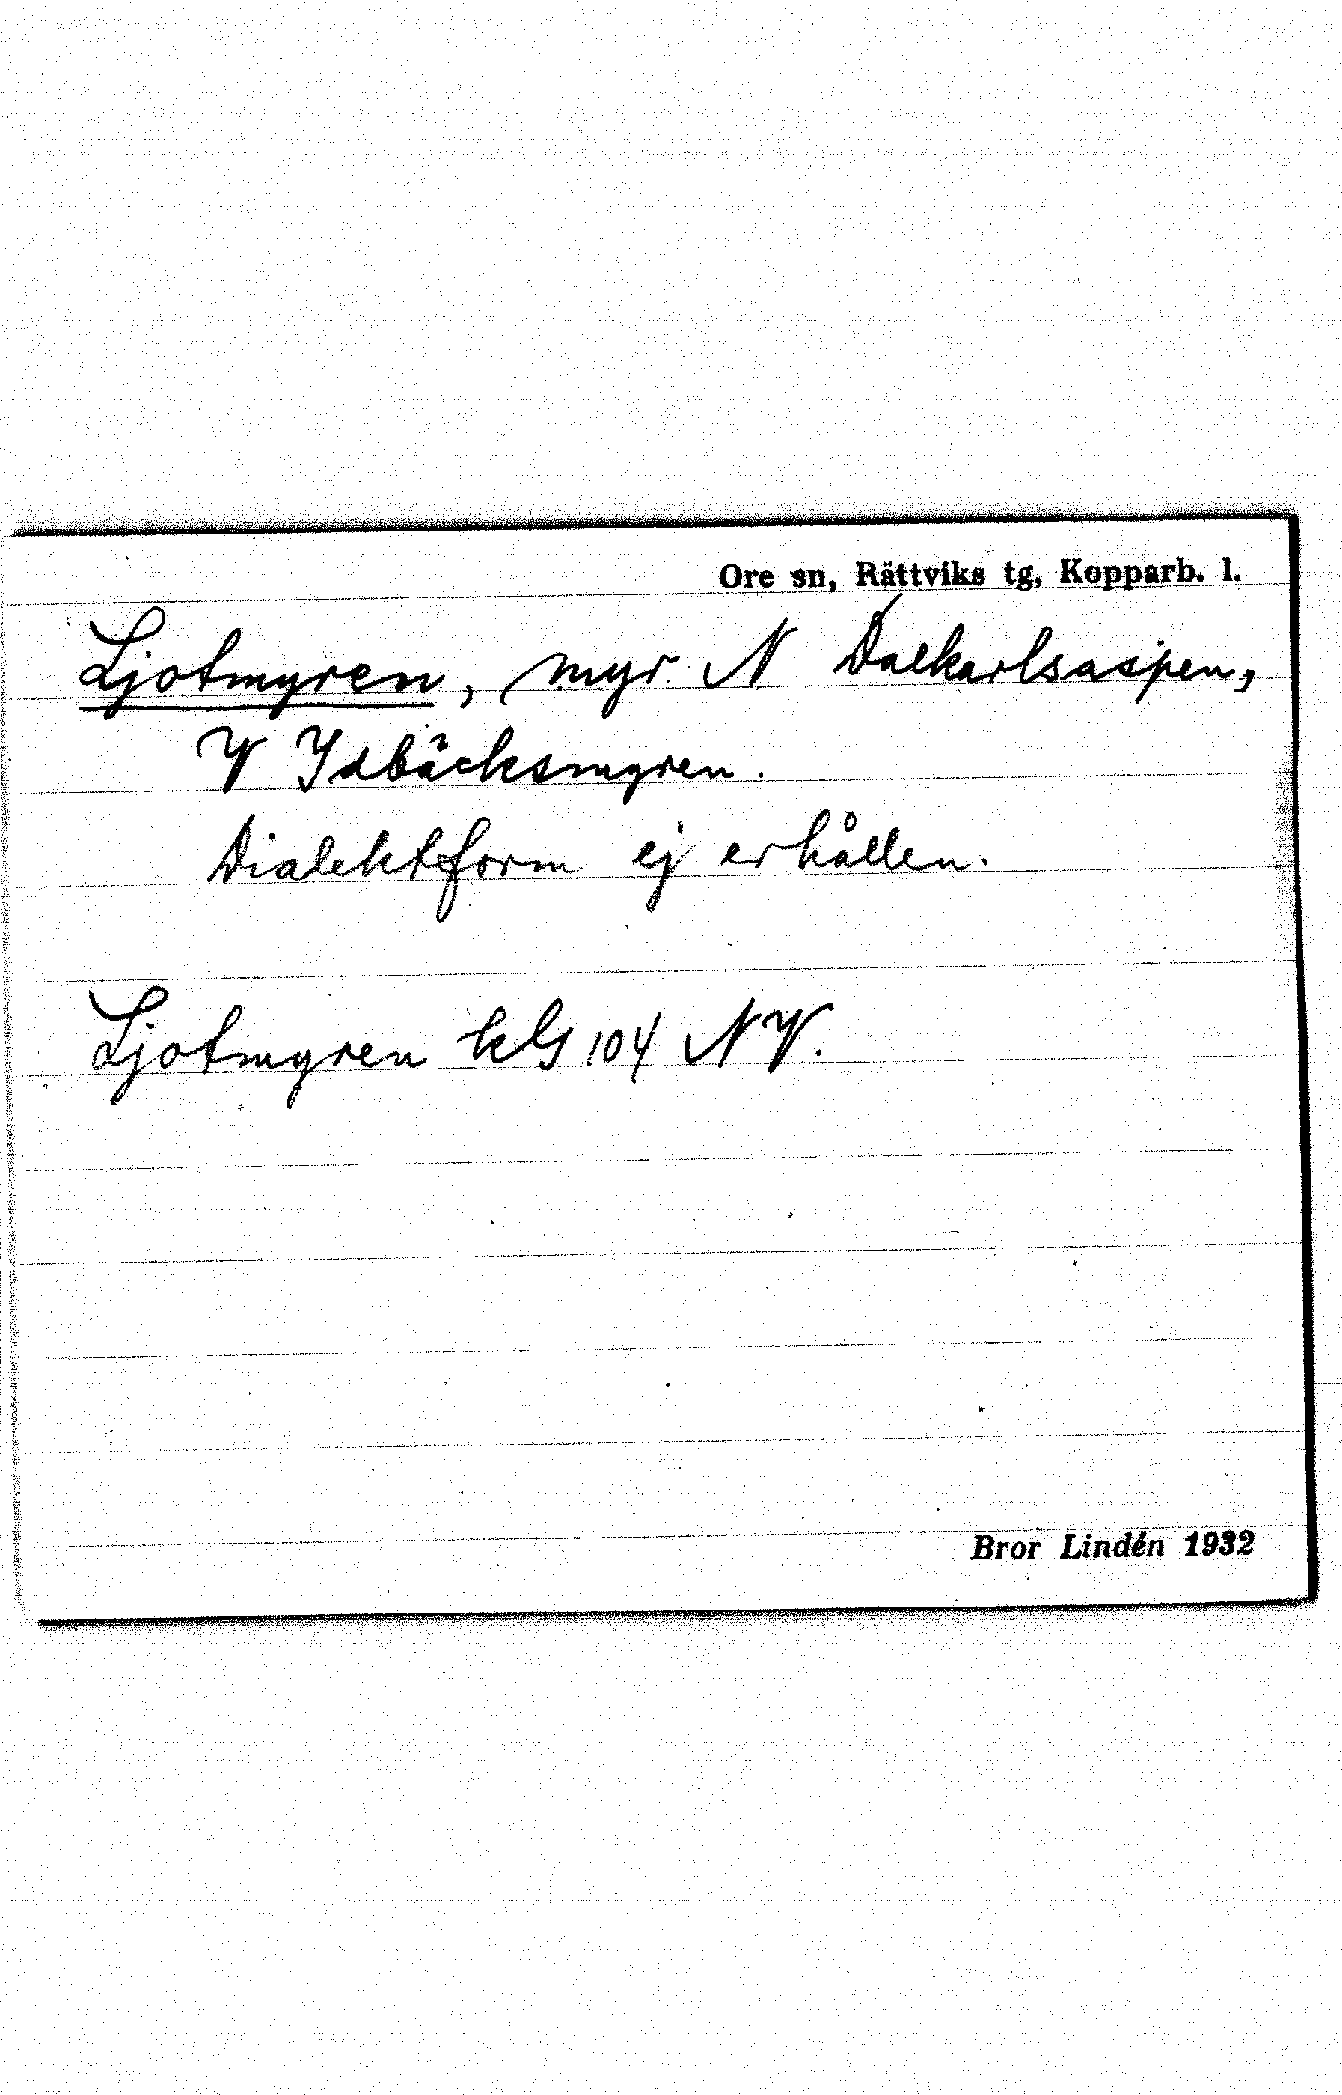 Ore sn, Rättviks tg, Kopparb. l.
Ljotmyren, myr N Dalkarlsaspen,
V Idbäcksmyren.
Dialektform ej erhållen.
Ljotmyren kbl 104 NV.
Bror Lindén 1932